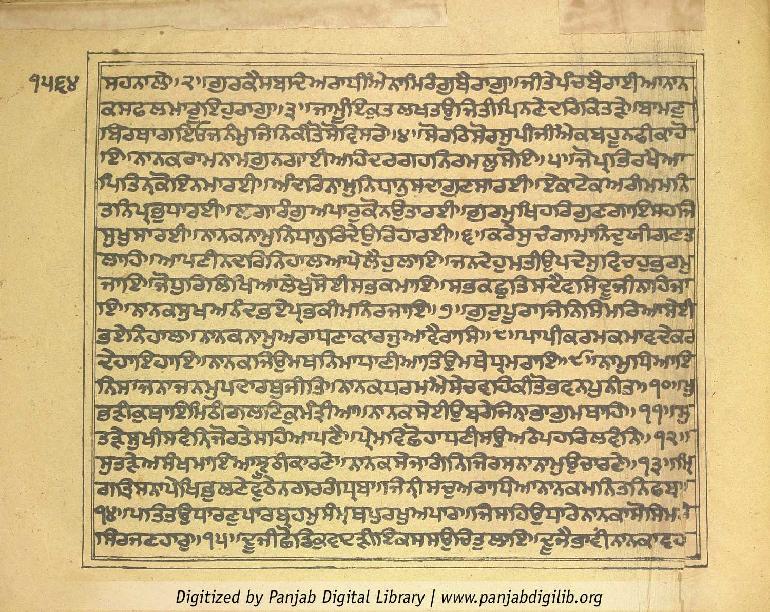 ੧੫੬੪
ਸਹਨਾਲੇ॥੨॥ਗੁਰਕੈਸਬਦਿਅਰਾਧੀਐਨਾਮਿਰੰਗਿਬੈਰਾਗੁ॥ਜੀਤੇਪੰਚਬੈਰਾਈਆਨਾਨ
ਕਸਫਲਮਾਰੂਇਹੁਰਾਗੁ॥੩॥ਜਾਮੂੰਇਕੁਤਲਖਤਉਜਿਤੀਪਿਨਣੇਦਰਿਕਿਤੜੇ॥ਬਾਮਣੁ
ਬਿਰਥਾਗਇਓਜਨੰਮੁਜਿਨਿਕੀਤੋਸੋਵਿਸਰੇ॥੪॥ਸੋਰਠਿਸੋਰਸੁਪੀਜੀਐਕਬਹੂਨਫੀਕਾਹੋ
ਇ॥ਨਾਨਕਰਾਮਨਾਮਗੁਨਗਾਈਅਹਿਦਰਗਹਨਿਰਮਲਸੋਇ॥੫॥ਜੋਪ੍ਰਭਿਰਖੇਆ
ਪਿਤਿਨਕੋਇਨਮਾਰਈ॥ਅੰਦਰਿਨਾਮੁਨਿਧਾਨੁਸਦਾਗੁਣਸਾਰਈ॥ਏਕਾਟੇਕਅਗੰਮਮਨਿ
ਤਨਿਪ੍ਰਭੁਧਾਰਈ॥ਲਗਾਰੰਗੁਅਪਾਰੁਕੋਨਉਤਾਰਈ॥ਗੁਰਮੁਖਿਹਰਿਗੁਣਗਾਇਸਹਜਿ
ਸੁਖੁਸਾਰਈ॥ਨਾਨਕਨਾਮੁਨਿਧਾਨੁਰਿਦੈਉਰਿਹਾਰਈ॥੬॥ਕਰੇਸੁਚੰਗਾਮਾਨਿਦੁਯੀਗਣਤ
ਲਾਹਿ॥ਆਪਣੀਨਦਰਿਨਿਹਾਲਿਆਪੇਲੈਹੁਲਾਇ॥ਜਨਦੇਹੁਮਤੀਉਪਦੇਸੁਵਿਚਹੁਭਰਮੁ
ਜਾਇ॥ਜੋਧੁਰਿਲਿਖਿਆਲੇਖੁਸੋਈਸਭਕਮਾਇ॥ਸਭਕਛੁਤਿਸਦੈਵਸਿਦੂਜੀਨਾਹਿਜਾ
ਇ॥ਨਾਨਕਸੁਖਅਨੰਦਭਏਪ੍ਰਭਕੀਮਨਿਰਜਾਇ॥੭॥ਗੁਰੁਪੂਰਾਜਿਨਿਸਿਮਰਿਆਸੇਈ
ਭਏਨਿਹਾਲ॥ਨਾਨਕਨਾਮੁਅਰਾਧਣਾਕਾਰਜੁਆਵੈਰਾਸਿ॥੮॥ਪਾਪੀਕਰਮਕਮਾਵਦੇਕਰ
ਦੇਹਾਇਹਾਇ॥ਨਾਨਕਜਿਉਮਥਨਿਮਾਧਾਣੀਆਤਿਉਮਥੇਧ੍ਰਮਰਾਇ॥੯॥ਨਾਮੁਧਿਆਇ
ਨਿਸਾਜਨਾਜਨਮਪਦਾਰਥੁਜੀਤਿ॥ਨਾਨਕਧਰਮਐਸੇਚਵਹਿਕੀਤੋਭਵਨਪੁਨੀਤ॥੧੦॥ਖੁ
ਭੜੀਕੁਥਾਇਮਿਠੀਗਲਣਿਕੁਮੰਤ੍ਰੀਆ॥ਨਾਨਕਸੇਈਉਬਰੇਜਿਨਾਭਾਗੁਮਥਾਹਿ॥੧੧॥ਸੁ
ਤੜੇਸੁਖੀਸਵੰਨਿਜੋਰਤੇਸਹਿਆਪਣੈ॥ਪ੍ਰੇਮਵਿਛੋਹਾਧਣੀਸਉਅਠੇਪਹਰਿਲਵੰਨਿ॥੧੨॥
ਸੁਤੜੇਅਸੰਖਮਾਇਆਝੂਠੀਕਾਰਣੇ॥ਨਾਨਕਸੇਜਾਗੰਨਿਜਿਰਸਨਾਨਾਮੁਉਚਾਰਣੇ॥੧੩॥ਮ੍ਰਿ
ਗਤਿਸਨਾਪੇਖਿਭੁਲਣੇਵੁਠੇਨਗਰਗੰਧ੍ਰਬ॥ਜਿਨੀਸਚੁਅਰਾਧਿਆਨਾਨਕਮਨਿਤਨਿਫਬ॥
੧੪॥ਪਤਿਤਉਧਾਰਣਪਾਰਬ੍ਰਹਮੁਸੰਮ੍ਰਥਪੁਰਖੁਅਪਾਰੁ॥ਜਿਸਹਿਉਧਾਰੇਨਾਨਕਾਸੋਸਿਮਰੇ
ਸਿਰਜਣਹਾਰੁ॥੧੫॥ਦੂਜੀਛੋਡਿਕੁਵਾਟੜੀਇਕਸਸਉਚਿਤੁਲਾਇ॥ਦੂਜੈਭਾਵੀਨਾਨਕਾਵਹ
Digitized by Panjab Digital Library | www.panjabdigilib.org